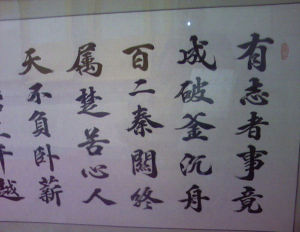 有志者事竟
成破釜沉舟
百二秦關終
属楚苦心人
天不負卧薪
三千越